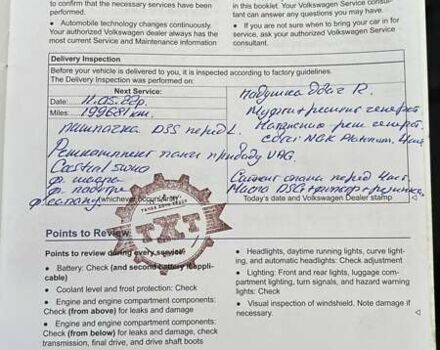 to confirm that the necessary services have been
performed.
• Automobile technology changes continuously.
Your authorized Volkswagen dealer always has the
most current Service and Maintenance information
in this booklet. Your Volkswagen Service consul-
tant can answer any questions you may have.
• If you are not sure when to bring your car in for
service, ask your authorized Volkswagen Service
consultant.
Delivery Inspection
Before your vehicle is delivered to you, it is inspected according to factory guidelines.
The Delivery Inspection was performed on:
Next Service:
Date: 11.05.22р.
Miles: 199681 км.
Подушка двиг R.
DSS перед L.
свечі NGK Platinum, 4шт
Ремкомплект паса приводу VAG.
Castrol 5w30
ф. масла
ф. повітря
ф. салону
(whichever occurs first)
Масло DSG+фильтр+
Today's date and Volkswagen Dealer stamp
ТХТ
Points to Review
Points to review during every service:
• Battery: Check (and second battery if appli-
cable)
• Coolant level and frost protection: Check
• Engine and engine compartment components:
Check (from above) for leaks and damage
• Engine and engine compartment components:
Check (from below) for leaks and damage, check
transmission, final drive, and drive shaft boots
• Headlights, daytime running lights, curve light-
ing, and automatic headlights: Check adjustment
• Lighting: Front and rear lights, luggage com-
partment lighting, turn signals, and hazard warning
lights: Check
• Visual inspection of windshield. Note damage if
necessary.